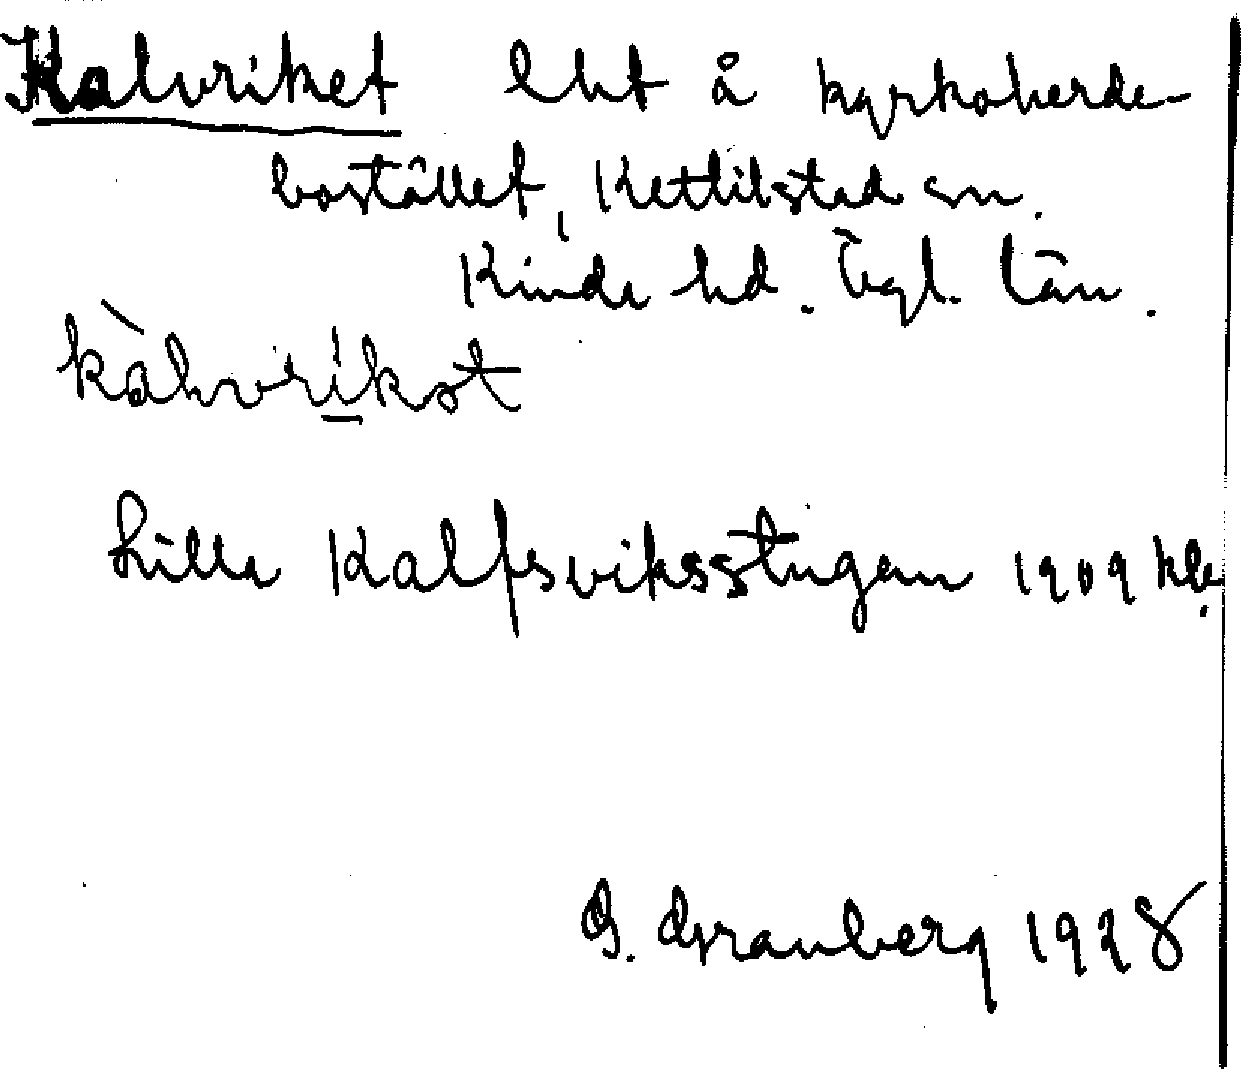 Kalvriket lht å kyrkoherde-
bostället, Kettilstad sn.
Kinda hd. Ögl. län.
kàlvrikət
Lilla Kalfsviksstugan 1909 kb.
G. Granberg 1928